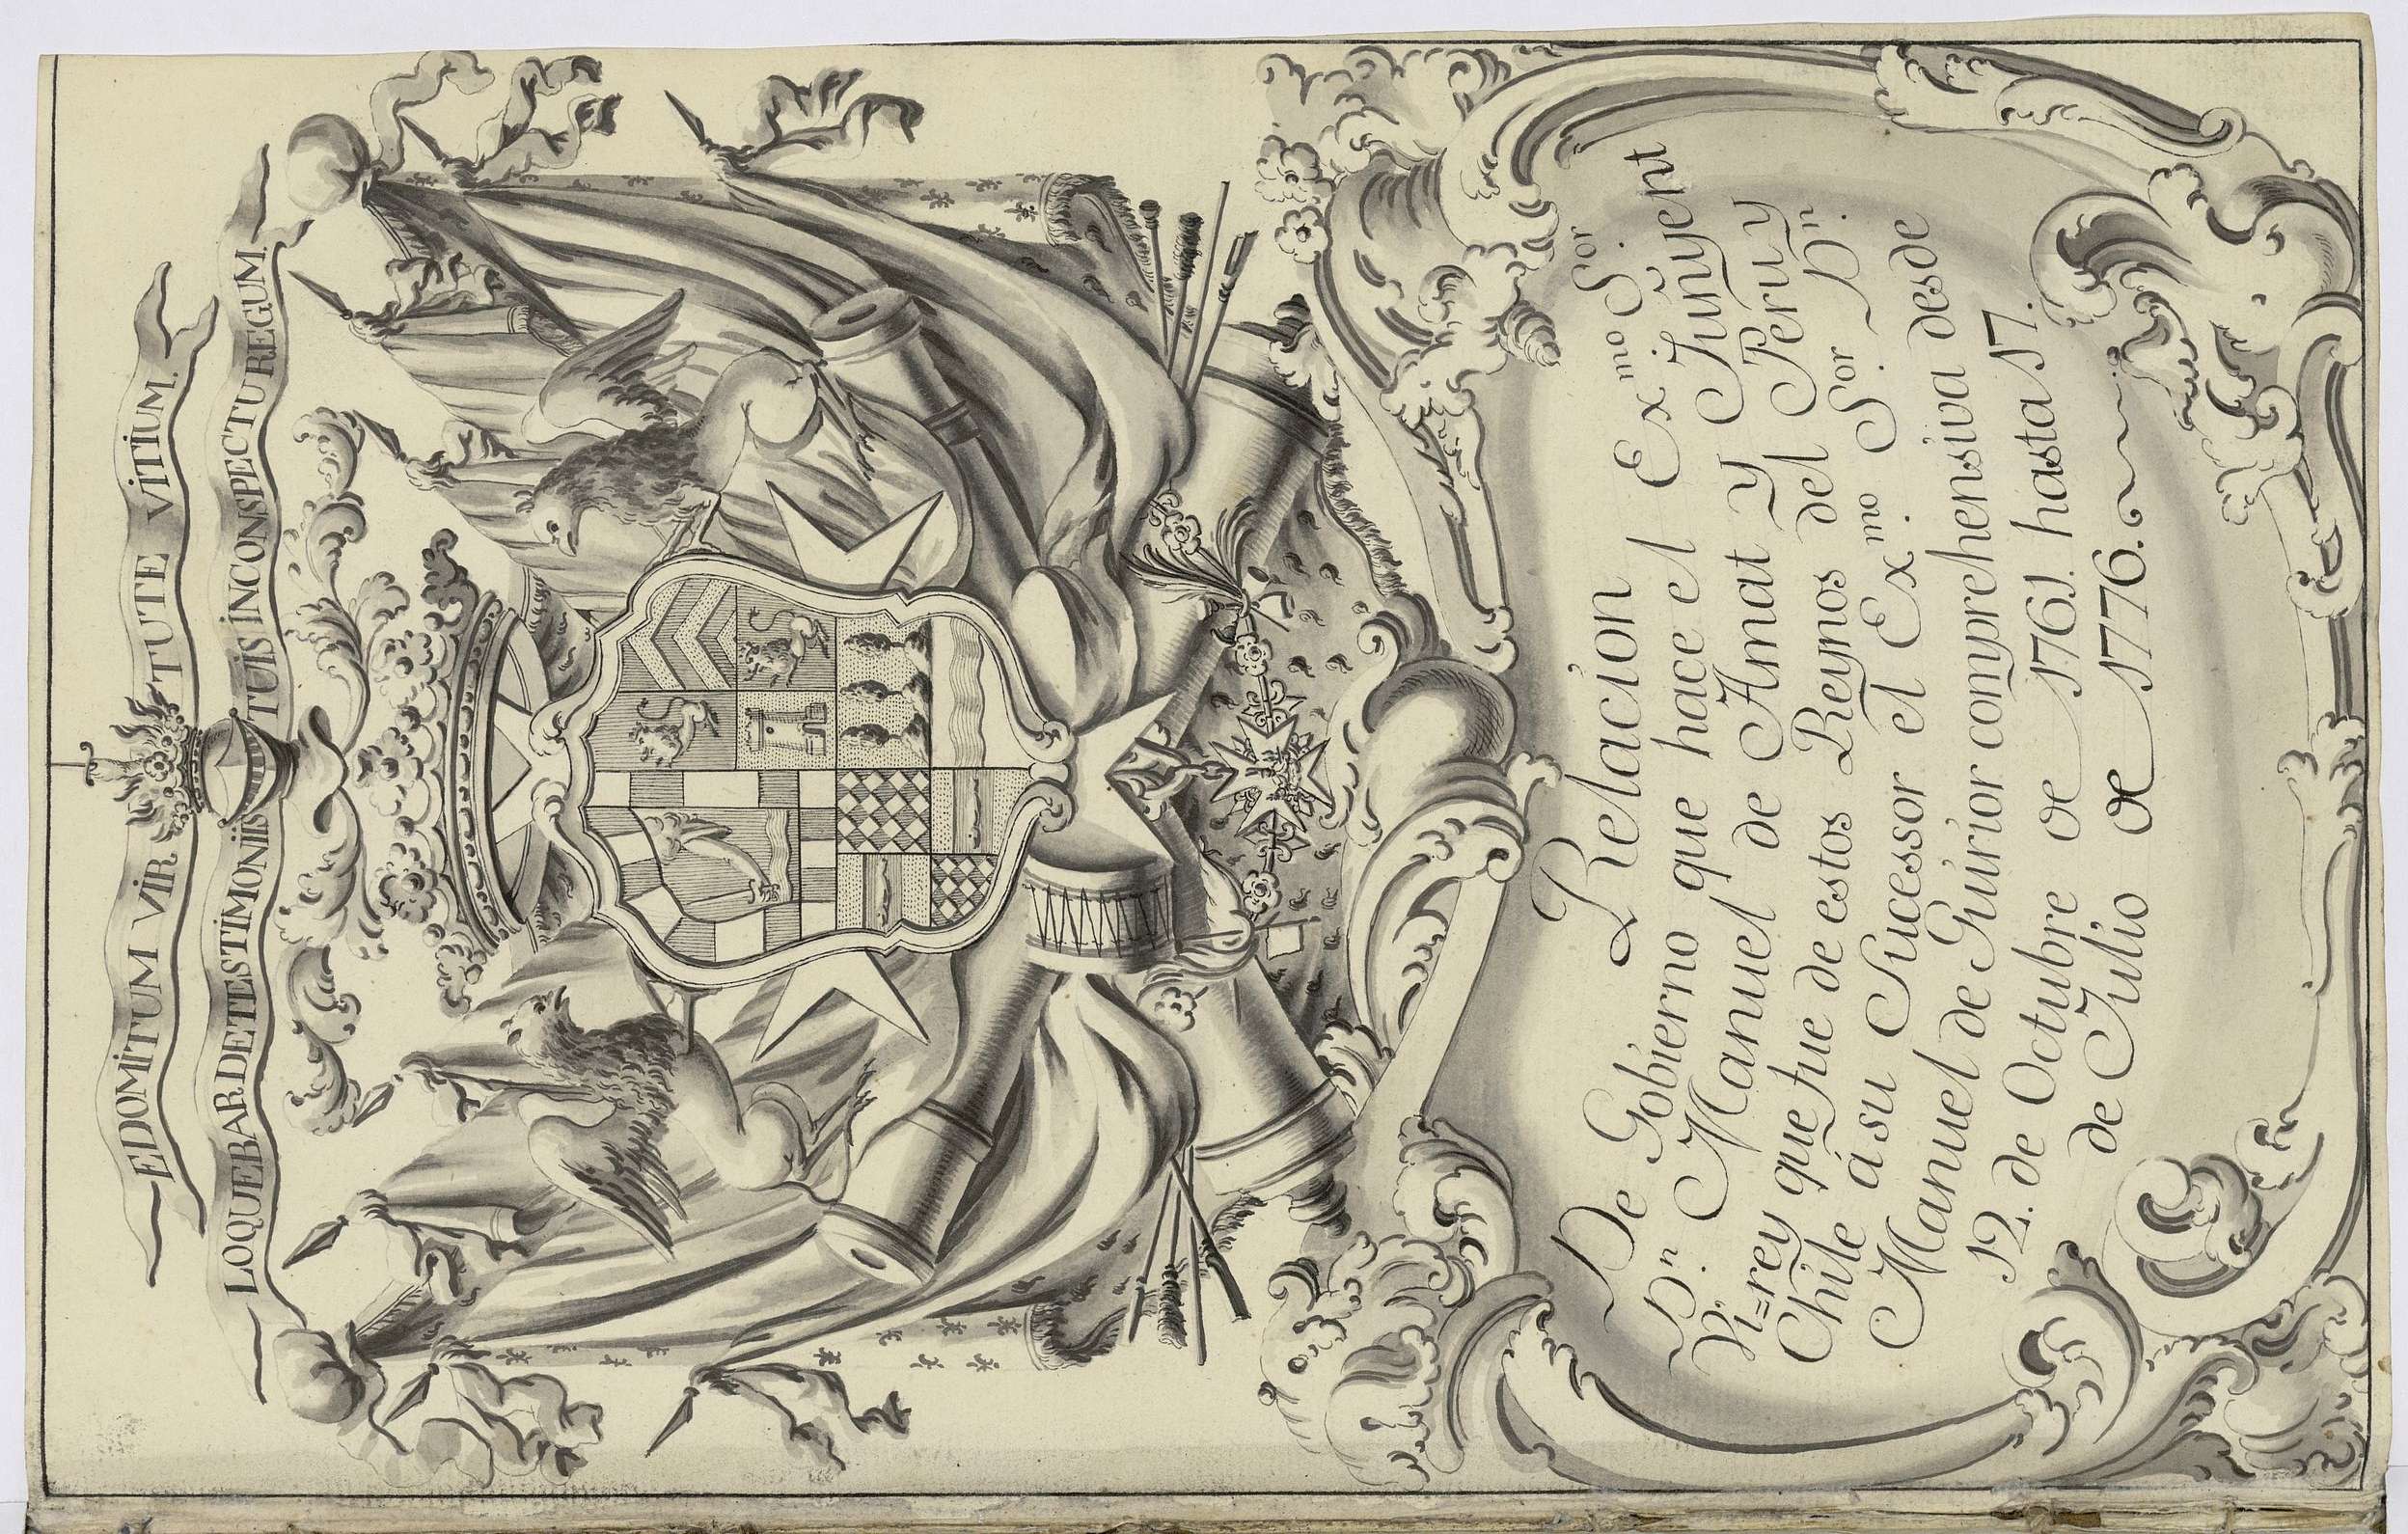 EDOMITUM VIRTUTE VITIUM.
LOQUEBAR DE TESTIMONIIS TUIS IN CONSPECTU REGUM.
Relacion
De Gobierno que hace el Ex.mo S.or
D.n Manuel de Amat y Junyent
Vi=rey que fue de estos Reynos del Peru y
Chile á su Sucessor el Ex.mo S.or D.n
Manuel de Guirior comprehensiva desde
12. de Octubre de 1761. hasta 17.
de Julio de 1776.